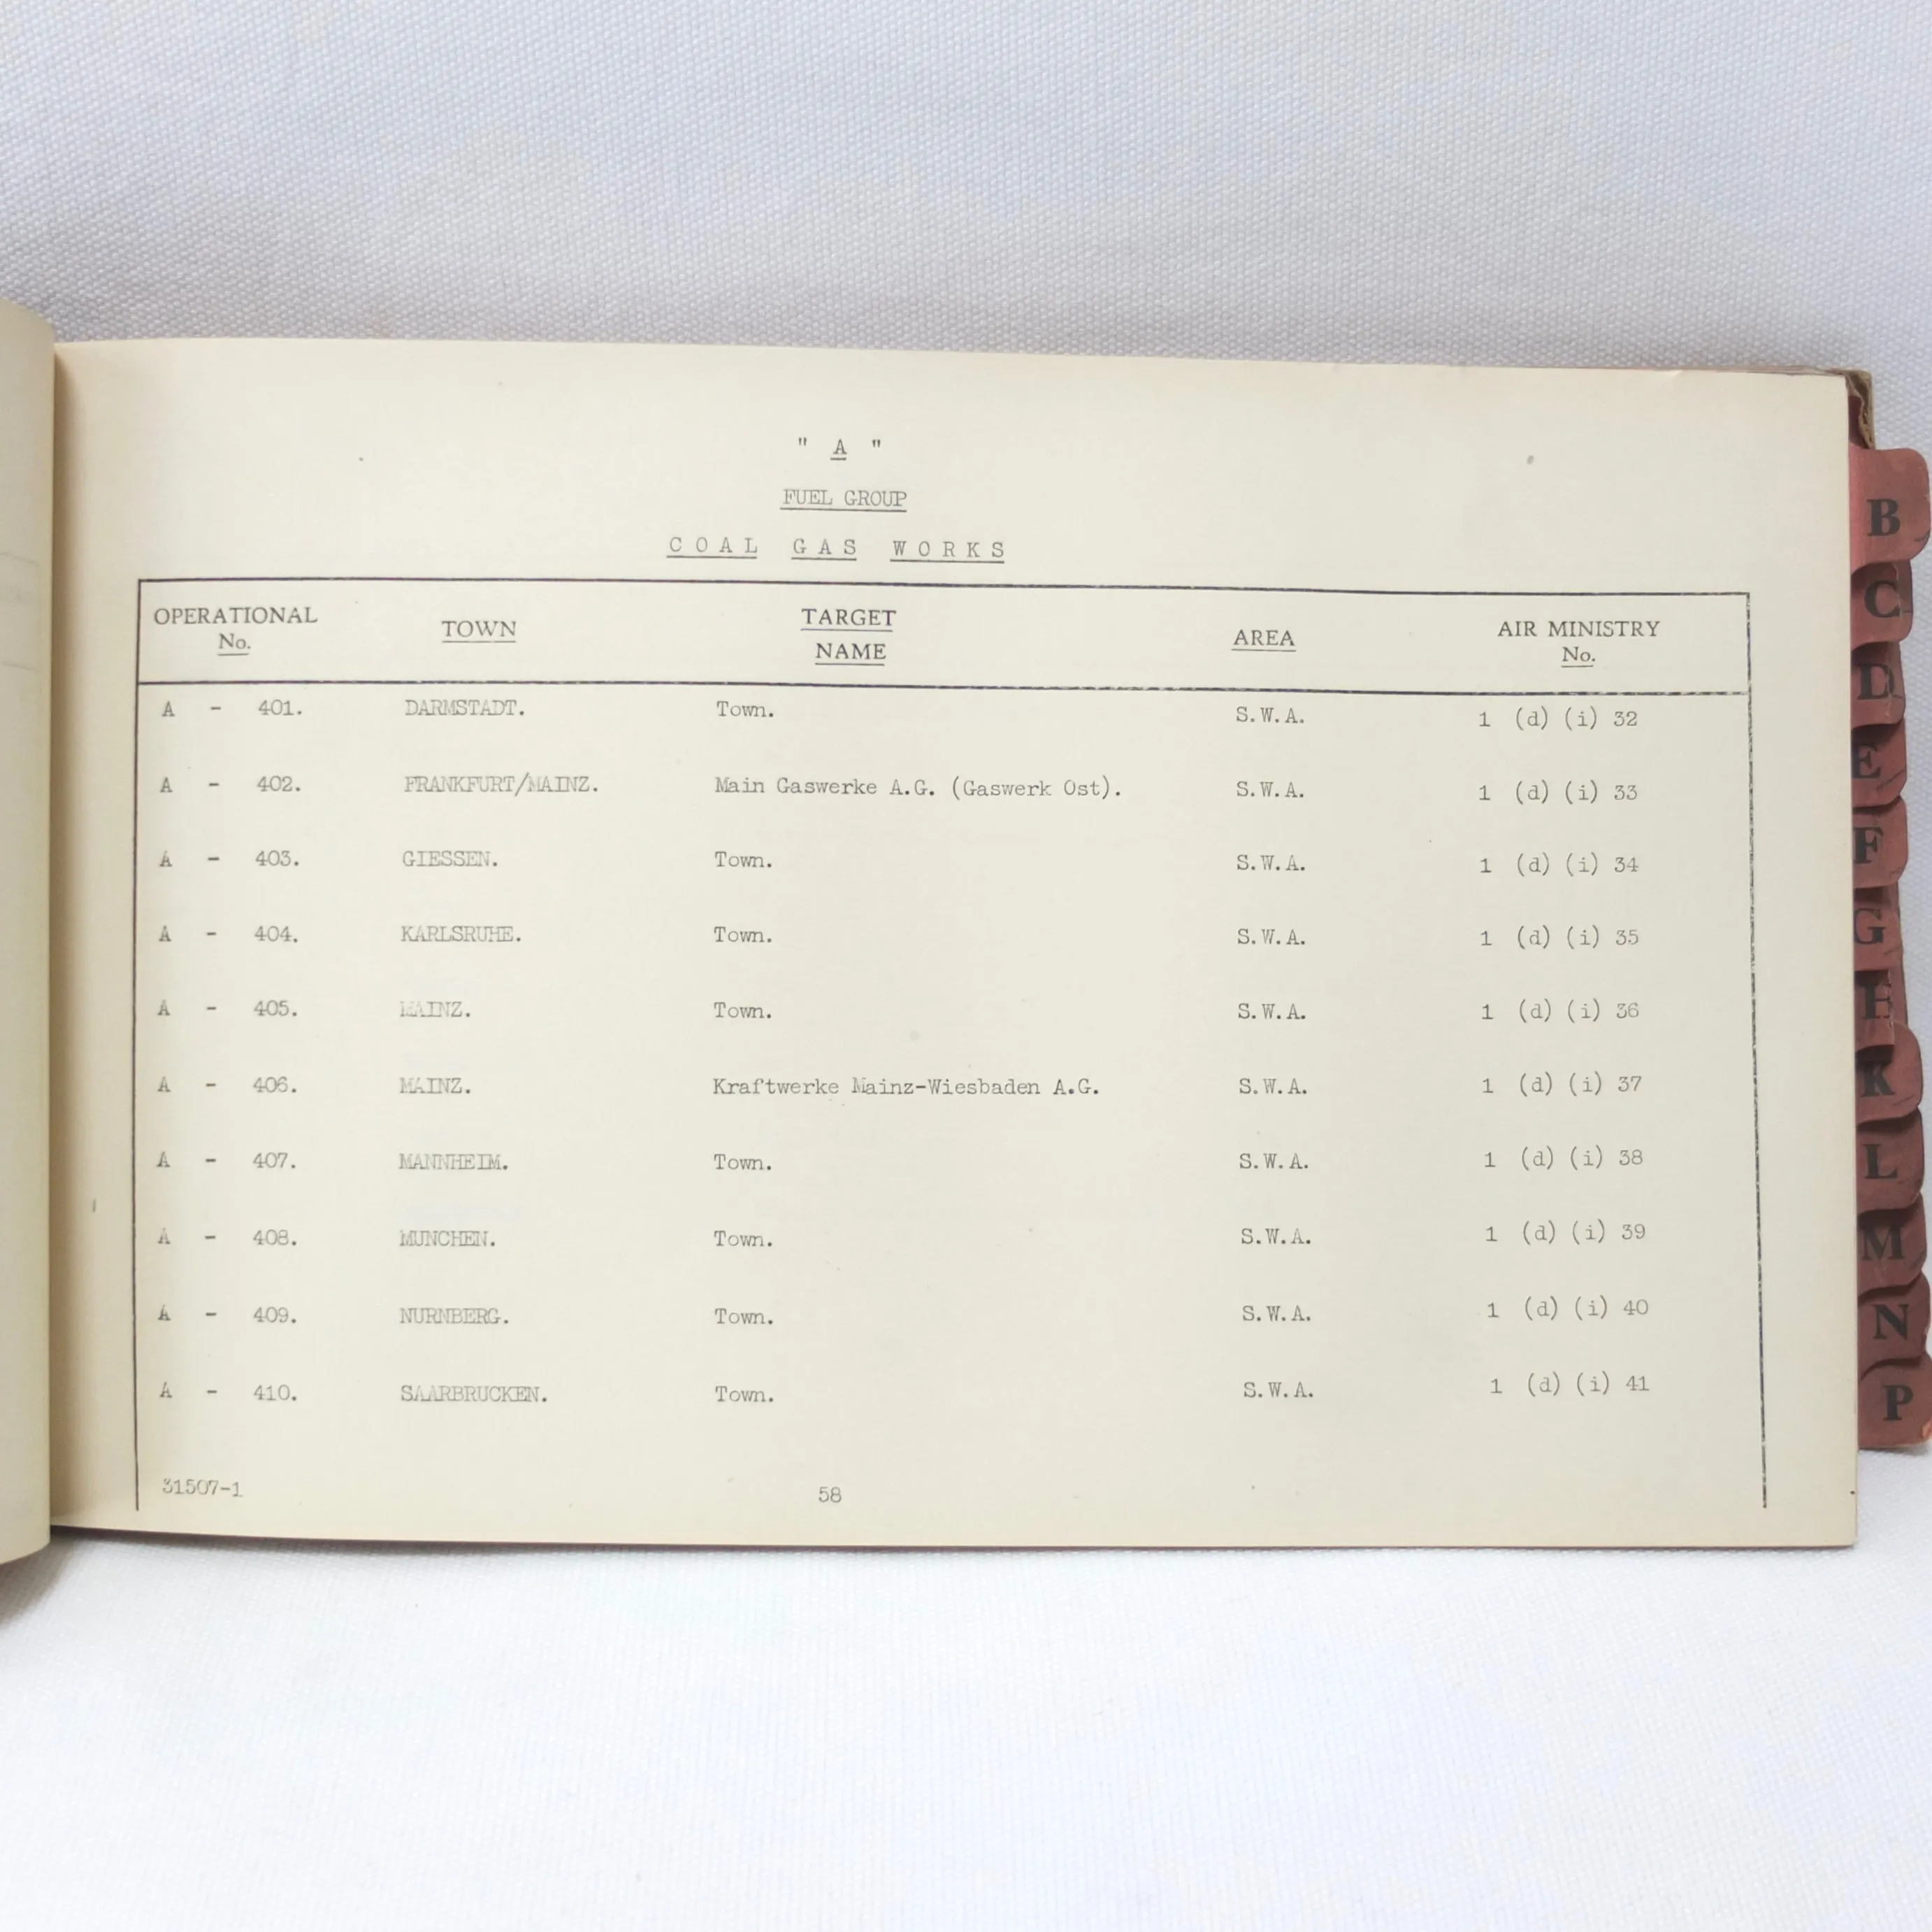 " A "
FUEL GROUP
COAL GAS WORKS
OPERATIONAL No. TOWN TARGET NAME AREA AIR MINISTRY No.
A - 401. DARMSTADT. Town. S.W.A. 1 (d) (i) 32
A - 402. FRANKFURT/MAINZ. Main Gaswerke A.G. (Gaswerk Ost). S.W.A. 1 (d) (i) 33
A - 403. GIESSEN. Town. S.W.A. 1 (d) (i) 34
A - 404. KARLSRUHE. Town. S.W.A. 1 (d) (i) 35
A - 405. MAINZ. Town. S.W.A. 1 (d) (i) 36
A - 406. MAINZ. Kraftwerke Mainz-Wiesbaden A.G. S.W.A. 1 (d) (i) 37
A - 407. MANNHEIM. Town. S.W.A. 1 (d) (i) 38
A - 408. MUNCHEN. Town. S.W.A. 1 (d) (i) 39
A - 409. NURNBERG. Town. S.W.A. 1 (d) (i) 40
A - 410. SAARBRUCKEN. Town. S.W.A. 1 (d) (i) 41
31507-1 58
B
C
D
E
F
G
H
K
L
M
N
P